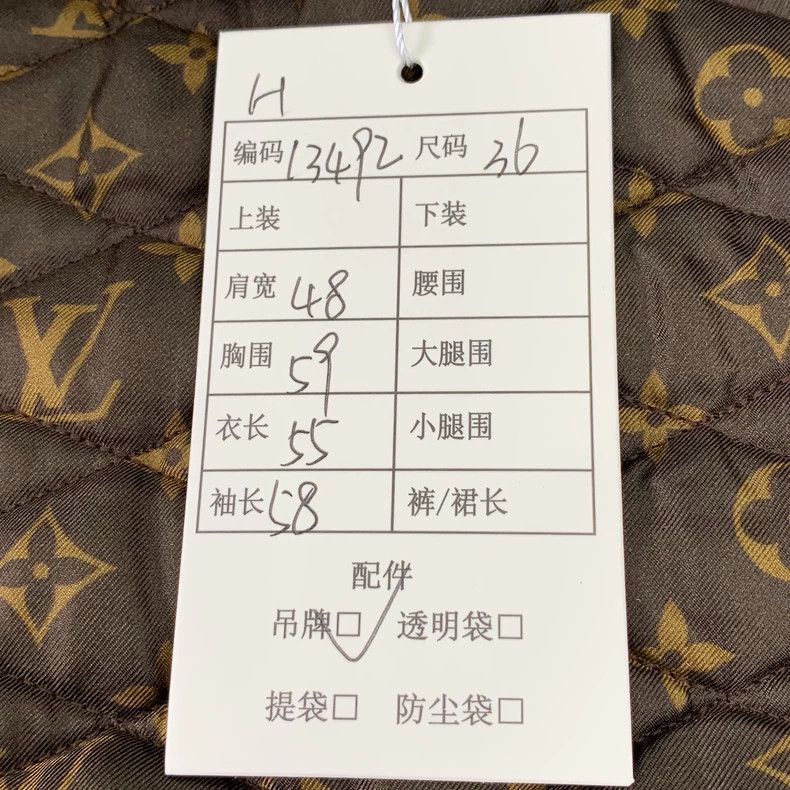 H
编码 13492 尺码 36
上装 下装
肩宽 48 腰围
胸围 59 大腿围
衣长 55 小腿围
袖长 58 裤/裙长
配件
吊牌□ ✓ 透明袋□
提袋□ 防尘袋□